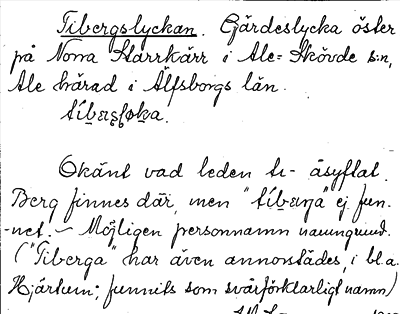 Tibergslyckan. Gärdeslycka öster
på Norra Starrkärr i Ale-Skövde s:n,
Ale härad i Älfsborgs län.
Okänt vad leden ti- åsyftat.
Berg finnes där, men "tíbærja" ej fun-
-net. – Möjligen personnamn
("Tiberga" har även annorstädes, i bl.a.
Hjärtum; funnits som svårförklarligt namn)